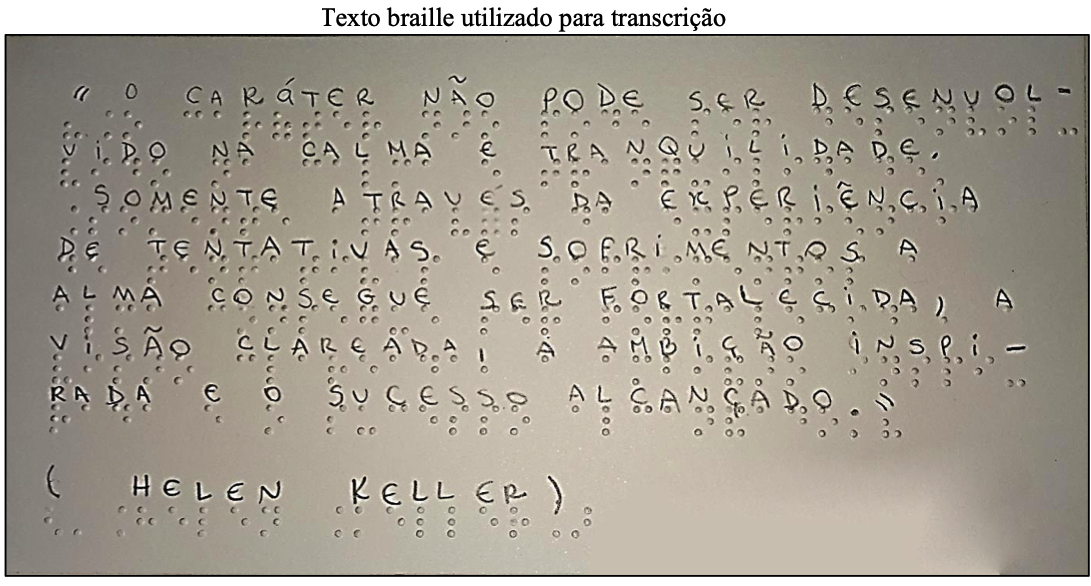 Texto braille utilizado para transcrição
" O CARáTER NÃO PODE SER DESENVOL-
ViDO NA CALMA E TRANQUiLiDADE.
SOMENTE ATRAVÉS DA EXPERiÊNCiA
DE TENTATiVAS E SOFRiMENTOS A
ALMA CONSEGUE SER FORTALECiDA, A
ViSÃO CLAREADA, A AMBiÇÃO iNSPi-
RADA E O SUCESSO ALCANÇADO."
( HELEN KELLER )